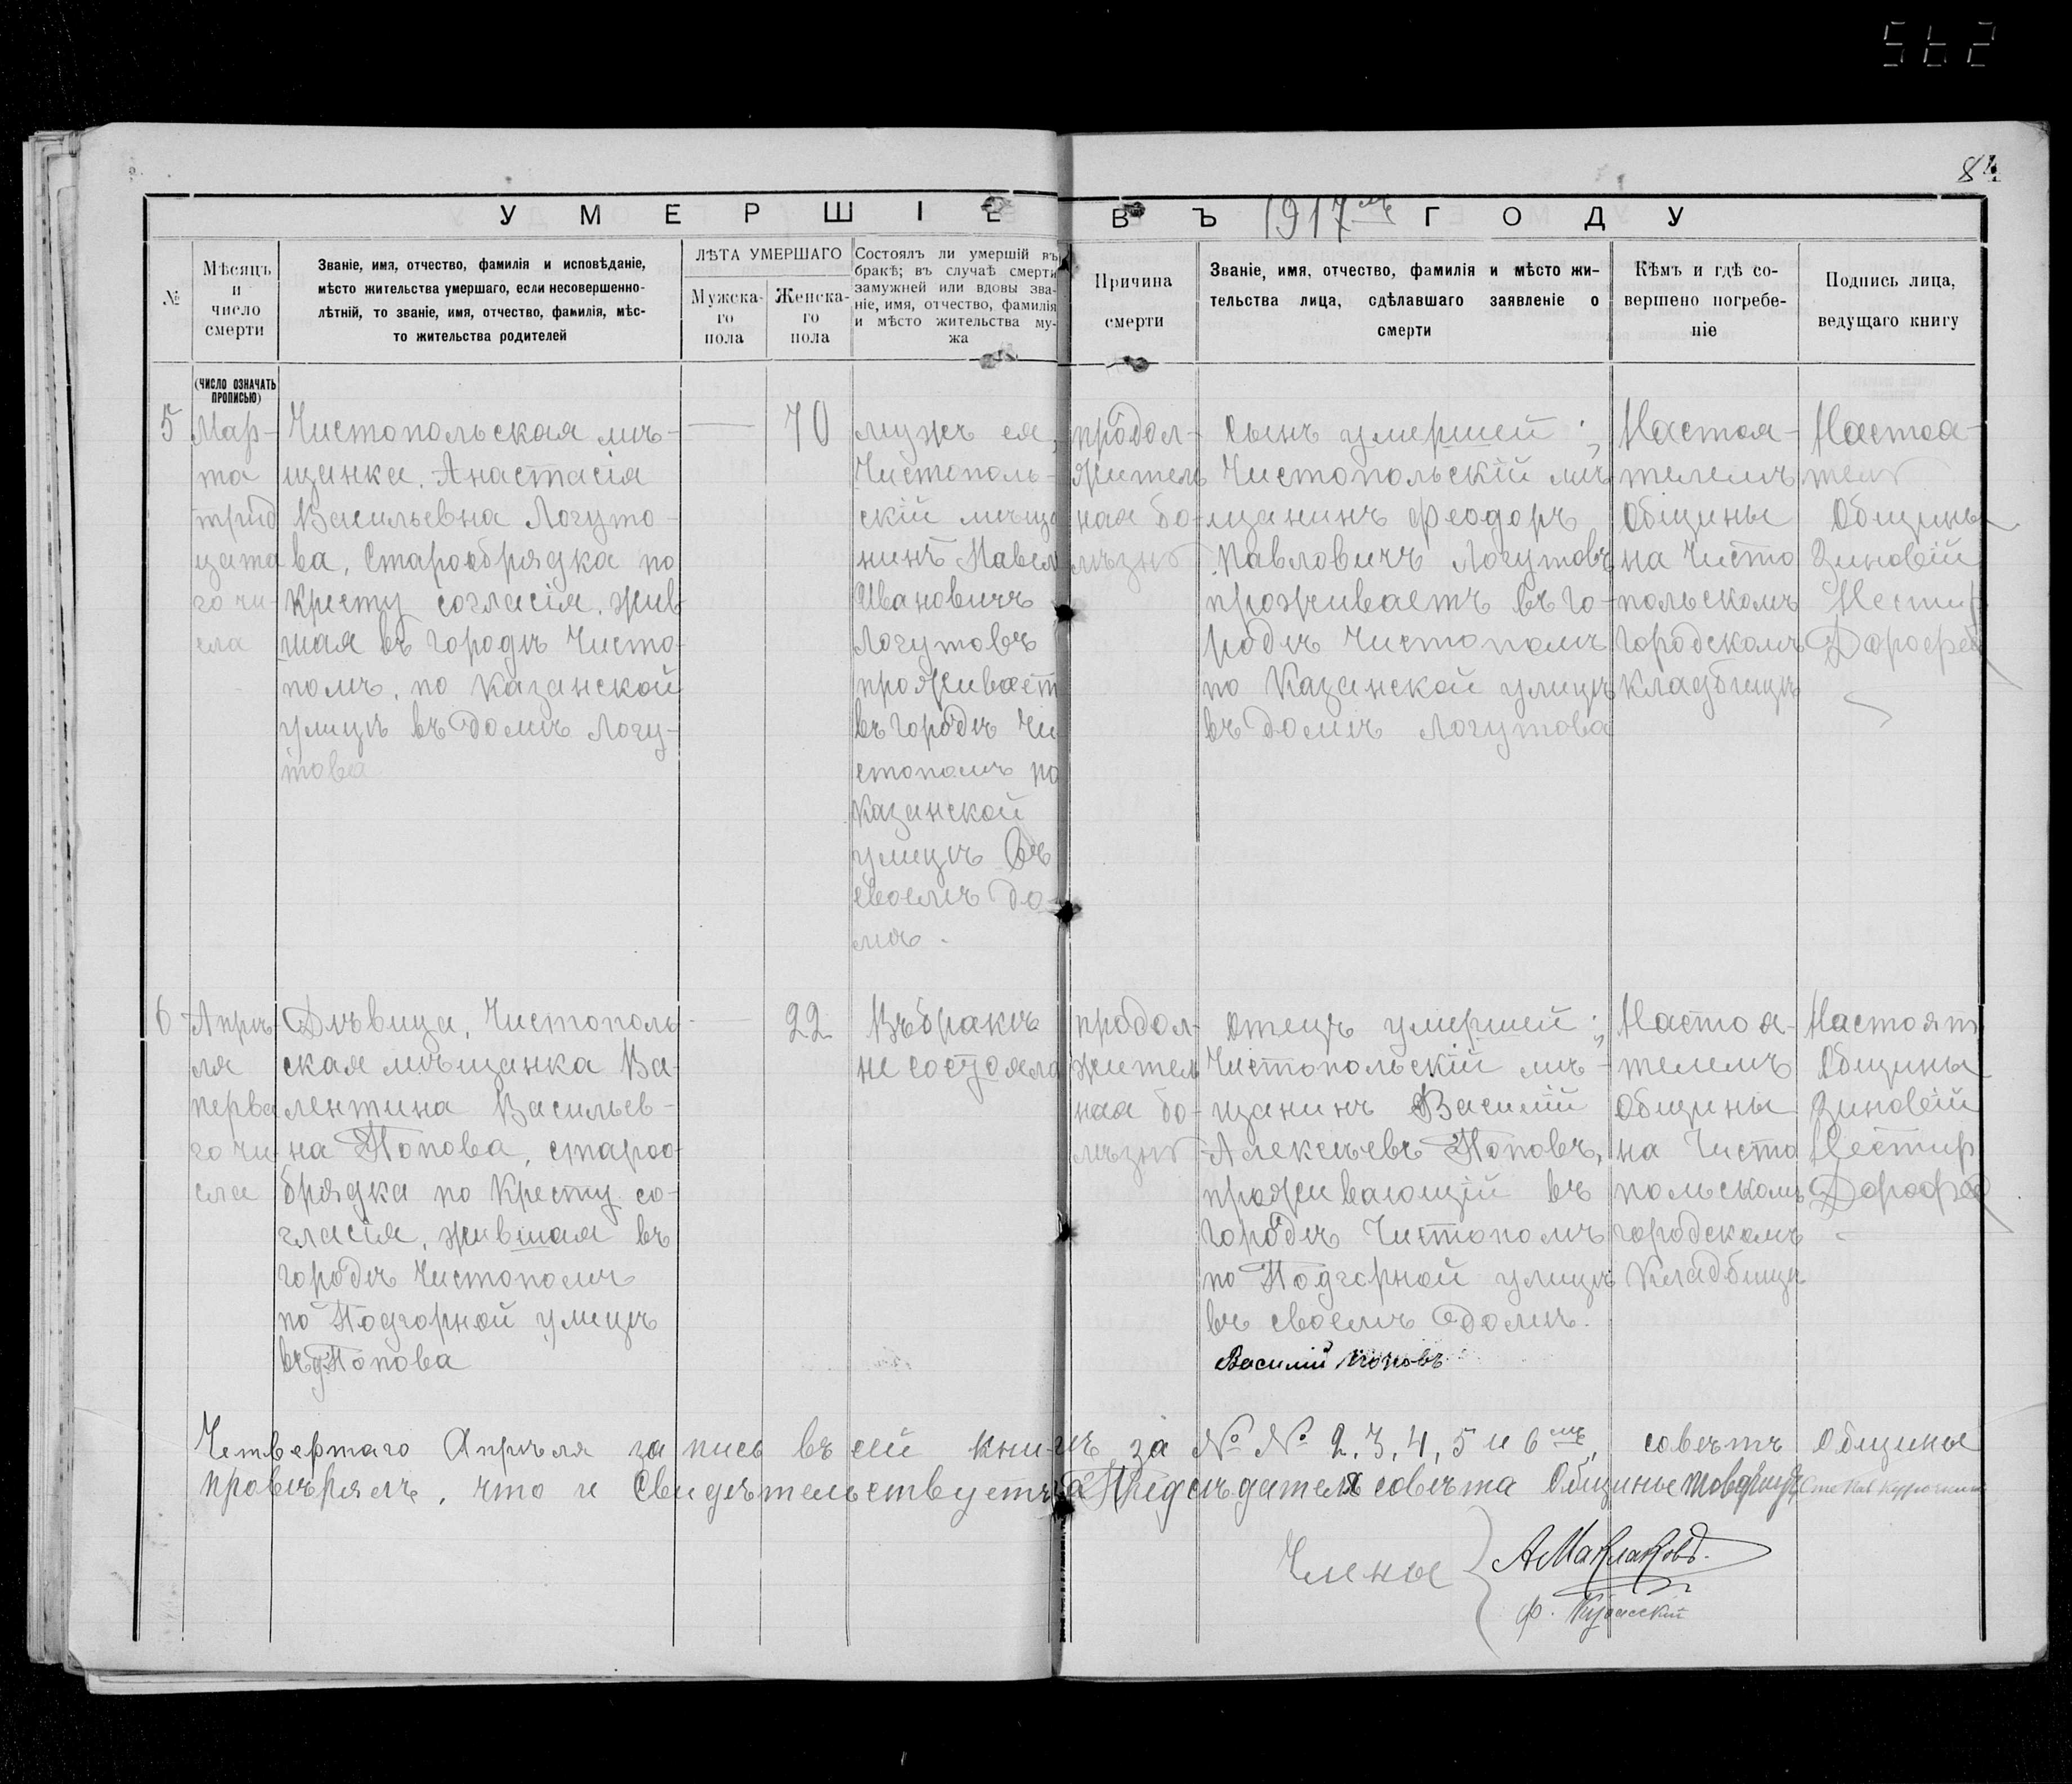 562
84
УМЕРШІЕ ВЪ 1917мъ ГОДУ
№
Мѣсяцъ
и
число
смерти
Званіе, имя, отчество, фамилія и исповѣданіе,
мѣсто жительства умершаго, если несовершенно-
лѣтній, то званіе, имя, отчество, фамилія, мѣс-
то жительства родителей
ЛѢТА УМЕРШАГО
Мужска-
го
пола
Женска-
го
пола
Состоялъ ли умершій въ
бракѣ; въ случаѣ смерти
замужней или вдовы зва-
ніе, имя, отчество, фамилія
и мѣсто жительства му-
жа
Причина
смерти
Званіе, имя, отчество, фамилія и мѣсто жи-
тельства лица, сдѣлавшаго заявленіе о
смерти
Кѣмъ и гдѣ со-
вершено погребе-
ніе
Подпись лица,
ведущаго книгу
(ЧИСЛО ОЗНАЧАТЬ
ПРОПИСЬЮ)
5
Мар-
та
трид
цата
го чи
сла
Чистопольская мѣ-
щанка, Анастасія
Васильевна Логуто-
ва, Старообрядка по
Кресту согласія, жив-
шая въ городѣ Чисто-
полѣ, по Казанской
улицѣ въ домѣ Логу-
това
70
мужъ ея,
Чистополь-
скій мѣща
нинъ Павел
Ивановичъ
Логутовъ
проживает
въ городѣ Чи
стополѣ по
Казанской
улицѣ въ
своемъ до-
мѣ.
продол-
жител
ная бо-
лѣзнь
Сынъ умершей;
Чистопольскій мѣ
щанинъ Феодоръ
Павловичъ Логутовъ
проживаетъ въ го-
родѣ Чистополѣ
по Казанской улицѣ
въ домѣ Логутова
Настоя-
телемъ
Общины
на Чисто
польскомъ
городскомъ
кладбищѣ
Настоя-
тель
Общины
Зиновій
Нестир
Дорофее
6
Апрѣ-
ля
перва
го чи
сла
Дѣвица, Чистополь-
ская мѣщанка Ва-
лентина Васильев-
на Попова, староо-
брядка по Кресту со-
гласія, жившая въ
городѣ Чистополѣ
по Подгорной улицѣ
въ д. Попова
22
Въ бракѣ
не состояла
продол-
жител
ная бо-
лѣзнь
Отецъ умершей;
Чистопольскій мѣ-
щанинъ Василій
Алексѣевъ Поповъ,
проживающій въ
городѣ Чистополѣ
по Подгорной улицѣ
въ своемъ домѣ.
Василій Поповъ
Настоя-
телемъ
Общины
на Чисто
польскомъ
городскомъ
Кладбищѣ
Настоят
Общины
Зиновій
Нестир
Дорофее
Четвертаго Апрѣля запись въ сей книгѣ за №№ 2, 3, 4, 5 и 6мъ, совѣтъ Общины
провѣрялъ, что и Свидѣтельствуетъ Предсѣдателя совѣта Общины
Члены
А Маклаковъ.